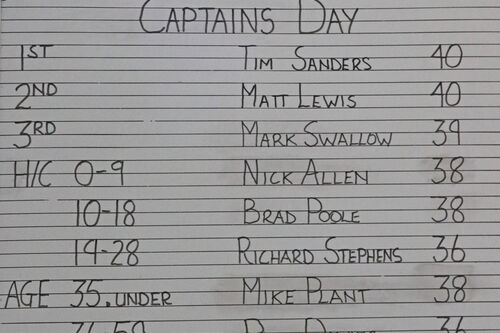 CAPTAINS DAY
1ST TIM SANDERS 40
2ND MATT LEWIS 40
3RD MARK SWALLOW 39
H/C 0-9 NICK ALLEN 38
10-18 BRAD POOLE 38
19-28 RICHARD STEPHENS 36
AGE 35.UNDER MIKE PLANT 38